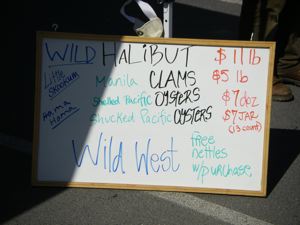 WILD HALIBUT $11 lb
Little Skookum
Manila CLAMS $5 lb
Shelled Pacific OYSTERS $7 doz
Hama Hama
Shucked Pacific OYSTERS $7 JAR
(13 count)
Wild West
free nettles
w/purchase